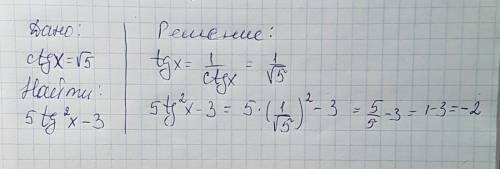 Дано:
ctgx=√5
Найти:
5tg²x-3
Решение:
tgx= 1/ctgx = 1/√5
5tg²x-3= 5·(1/√5)²-3 = 5/5-3=1-3=-2